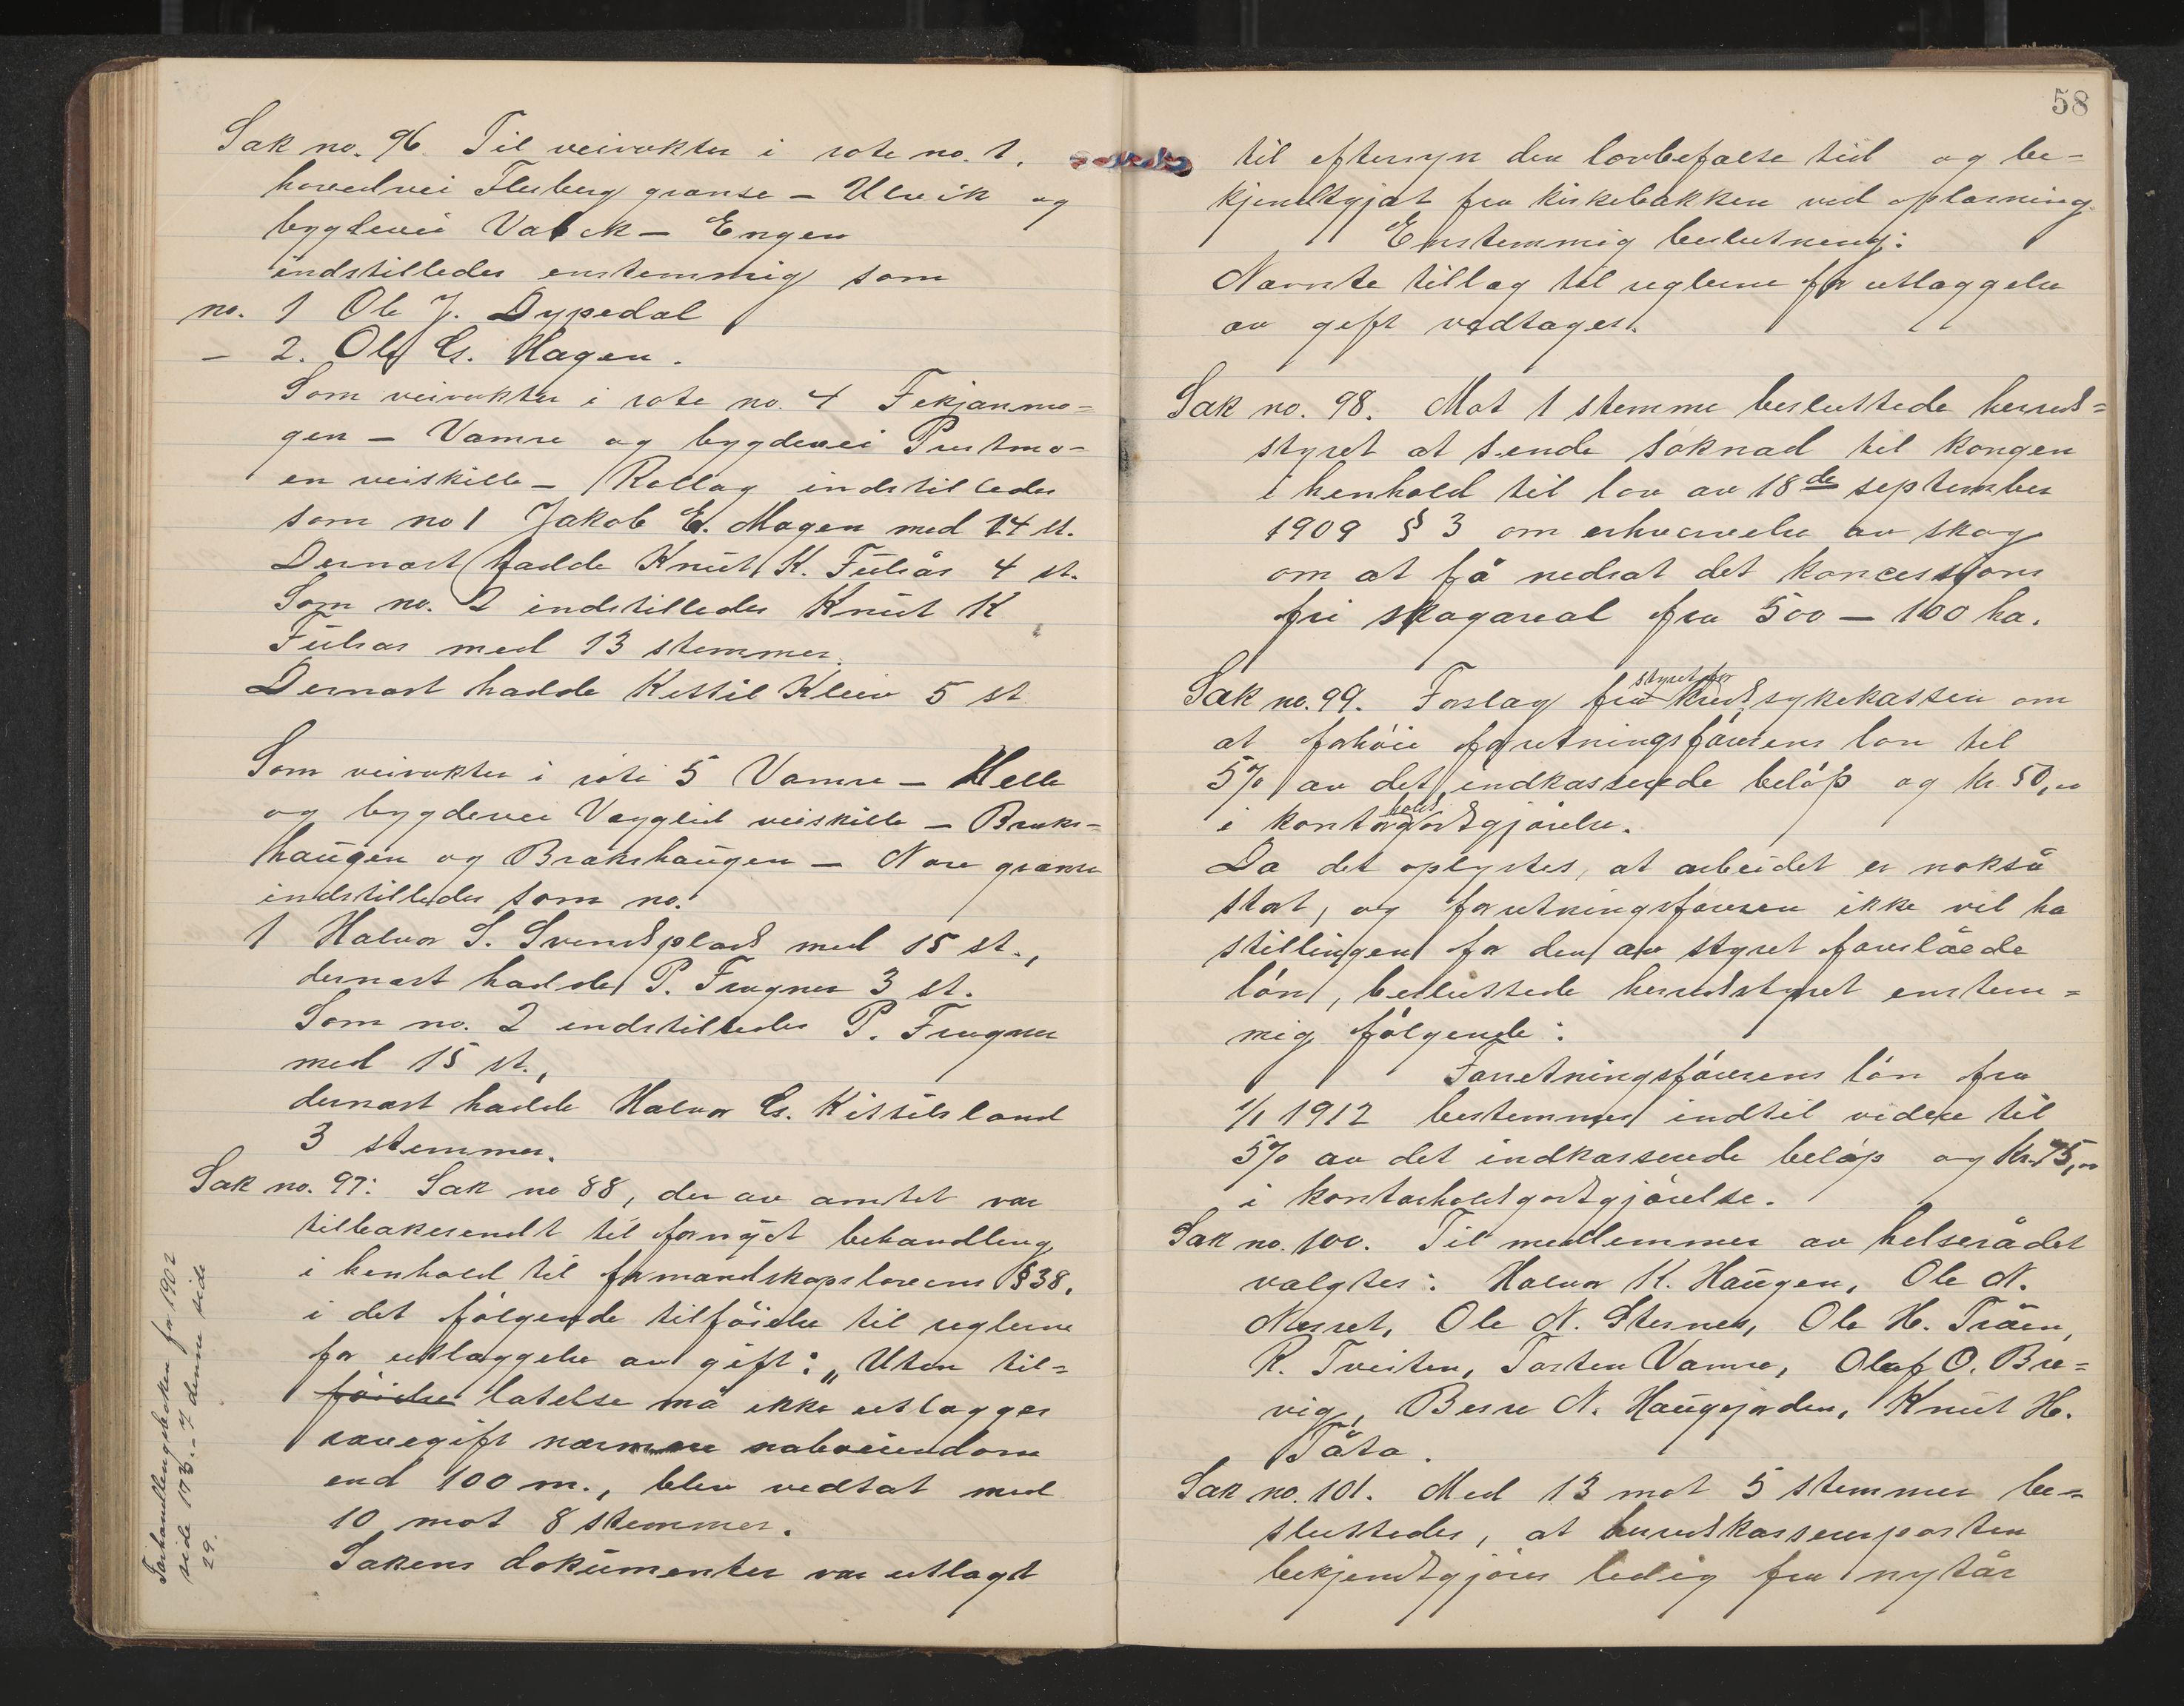 Sak no. 96. Til veivokter i rote no. 1.
hovedvei Flesberg grænse – Ulvik og
bygdevei Valck – Engen
indstilledes enstemmig som
no. 1 Ole J. Dypedal
– 2. Ole G. Hagen.
Som veivokter i rote no. 4 Fekjanmo-
gen – Vamre og bygdevei Prestmo-
en veiskille – Rollag indstilledes
som no 1 Jakob E. Mogen med 14 st.
Dernæst hadde Knut K. Fulsås 4 st.
Som no. 2 indstilledes Knut K
Fulsas med 13 stemmer.
Dernæst hadde Kittil Kleiv 5 st
Som veivokter i rote 5 Vamre – Helle
og bygdevei Væglid veiskille – Bruks-
haugen og Brakshaugen – Nore grænse
indstilledes som no.
1 Halvor S. Svendsplads med 15 st.,
dernæst hadde P. Frygner 3 st.
Som no. 2 indstilledes P. Frugner
med 15 st.,
dernæst hadde Halvor G. Kittilsland
3 stemmer.
Sak no. 97: Sak no 88, der av amtet var
tilbakesendt til fornyet behandling
i henhold til formandskapslovens § 38,
i det følgende tilføielse til reglerne
for utlæggelse av gift: „Uten til-
føielse latelse må ikke utlægges
rævegift nærmere naboeiendom
end 100 m., blev vedtat med
10 mot 8 stemmer.
Sakens dokumenter var utlagt
Forhandlingsboken for 1902
side 173. – 7 denne side
29.
58
til eftersyn den lovbefalte tid og be-
kjendtgjort fra kirkebakken ved oplæsning.
Enstemmig beslutning:
Nævnte tillæg til reglerne for utlæggelse
av gift vedtages.
Sak no. 98. Mot 1 stemme besluttede herreds-
styret at sende søknad til kongen
i henhold til lov av 18de september
1909 § 3 om erhvervelse av skog
om at få nedsat det koncessions
fri skogareal fra 500 – 100 ha.
styret for
Sak no. 99. Forslag fra kredssykekassen om
at forhøie forretningsførerens løn til
5% av det indkasserede beløp og kr. 50,00
hold
i kontorgodtgjørelse.
Da det oplystes, at arbeidet er nokså
stort, og forretningsføreren ikke vil ha
stillingen for den av styret foreslåede
løn, besluttede herredsstyret enstem-
mig følgende:
Forretningsførerens løn fra
1/1 1912 bestemmes indtil videre til
5% av det indkasserede beløp og kr. 75,00
i kontorholdsgodtgjørelse.
Sak no. 100. Til medlemmer av helserådet
valgtes: Halvor K. Haugen, Ole N.
Mesret, Ole N. Sternes, Ole H. Tråen,
K. Tveiten, Torsten Vamre, Olaf O. Bre-
vig, Besse N. Haugejorden, Knut H.
Tåta.
Sak no. 101. Med 13 mot 5 stemmer be-
sluttedes, at herredskassererposten
bekjendtgjøres ledig fra nytår